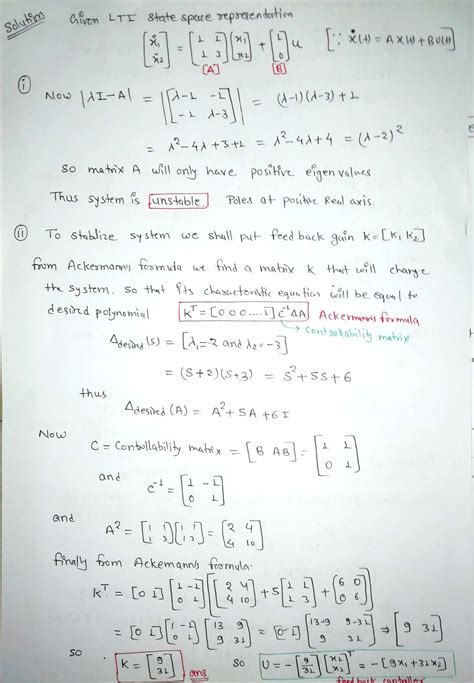 Solution Given LTI state space representation
[ẋ1 ẋ2] = [1 1; 1 3] [x1 x2] + [1; 0] u [∵ Ẋ(t) = AX(t) + BU(t)]
[A] [B]
(i)
Now |λI-A| = |[λ-1 -1; -1 λ-3]| = (λ-1)(λ-3)+1
= λ²-4λ+3+1 = λ²-4λ+4 = (λ-2)²
so matrix A will only have positive eigen values
Thus system is unstable. Poles at positive Real axis.
(ii) To stablize system we shall put feed back gain K=[K1 K2]
from Ackermann's formula we find a matrix K that will change
the system. so that its characteristic equation will be equal to
desired polynomial K^T = [0 0 0 ....1] C⁻¹ΔA Ackermann's formula
→ controllability matrix
Δdesired(s) = [λ1=-2 and λ2=-3]
= (s+2)(s+3) = s²+5s+6
thus
Δdesired(A) = A²+5A+6I
Now
C = Controllability matrix = [B AB] = [1 1; 0 1]
and
C⁻¹ = [1 -1; 0 1]
and
A² = [1 1; 1 3] [1 1; 1 3] = [2 4; 4 10]
finally from Ackemann's formula.
K^T = [0 1] [1 -1; 0 1] [[2 4; 4 10] + 5[1 1; 1 3] + [6 0; 0 6]]
= [0 1] [1 -1; 0 1] [13 9; 9 31] = [0 1] [13-9 9-31; 9 31] → [9 31]
so K = [9; 31] ans so U = -[9; 31] [x1; x2]^T = -[9x1+31x2]
feed back controller